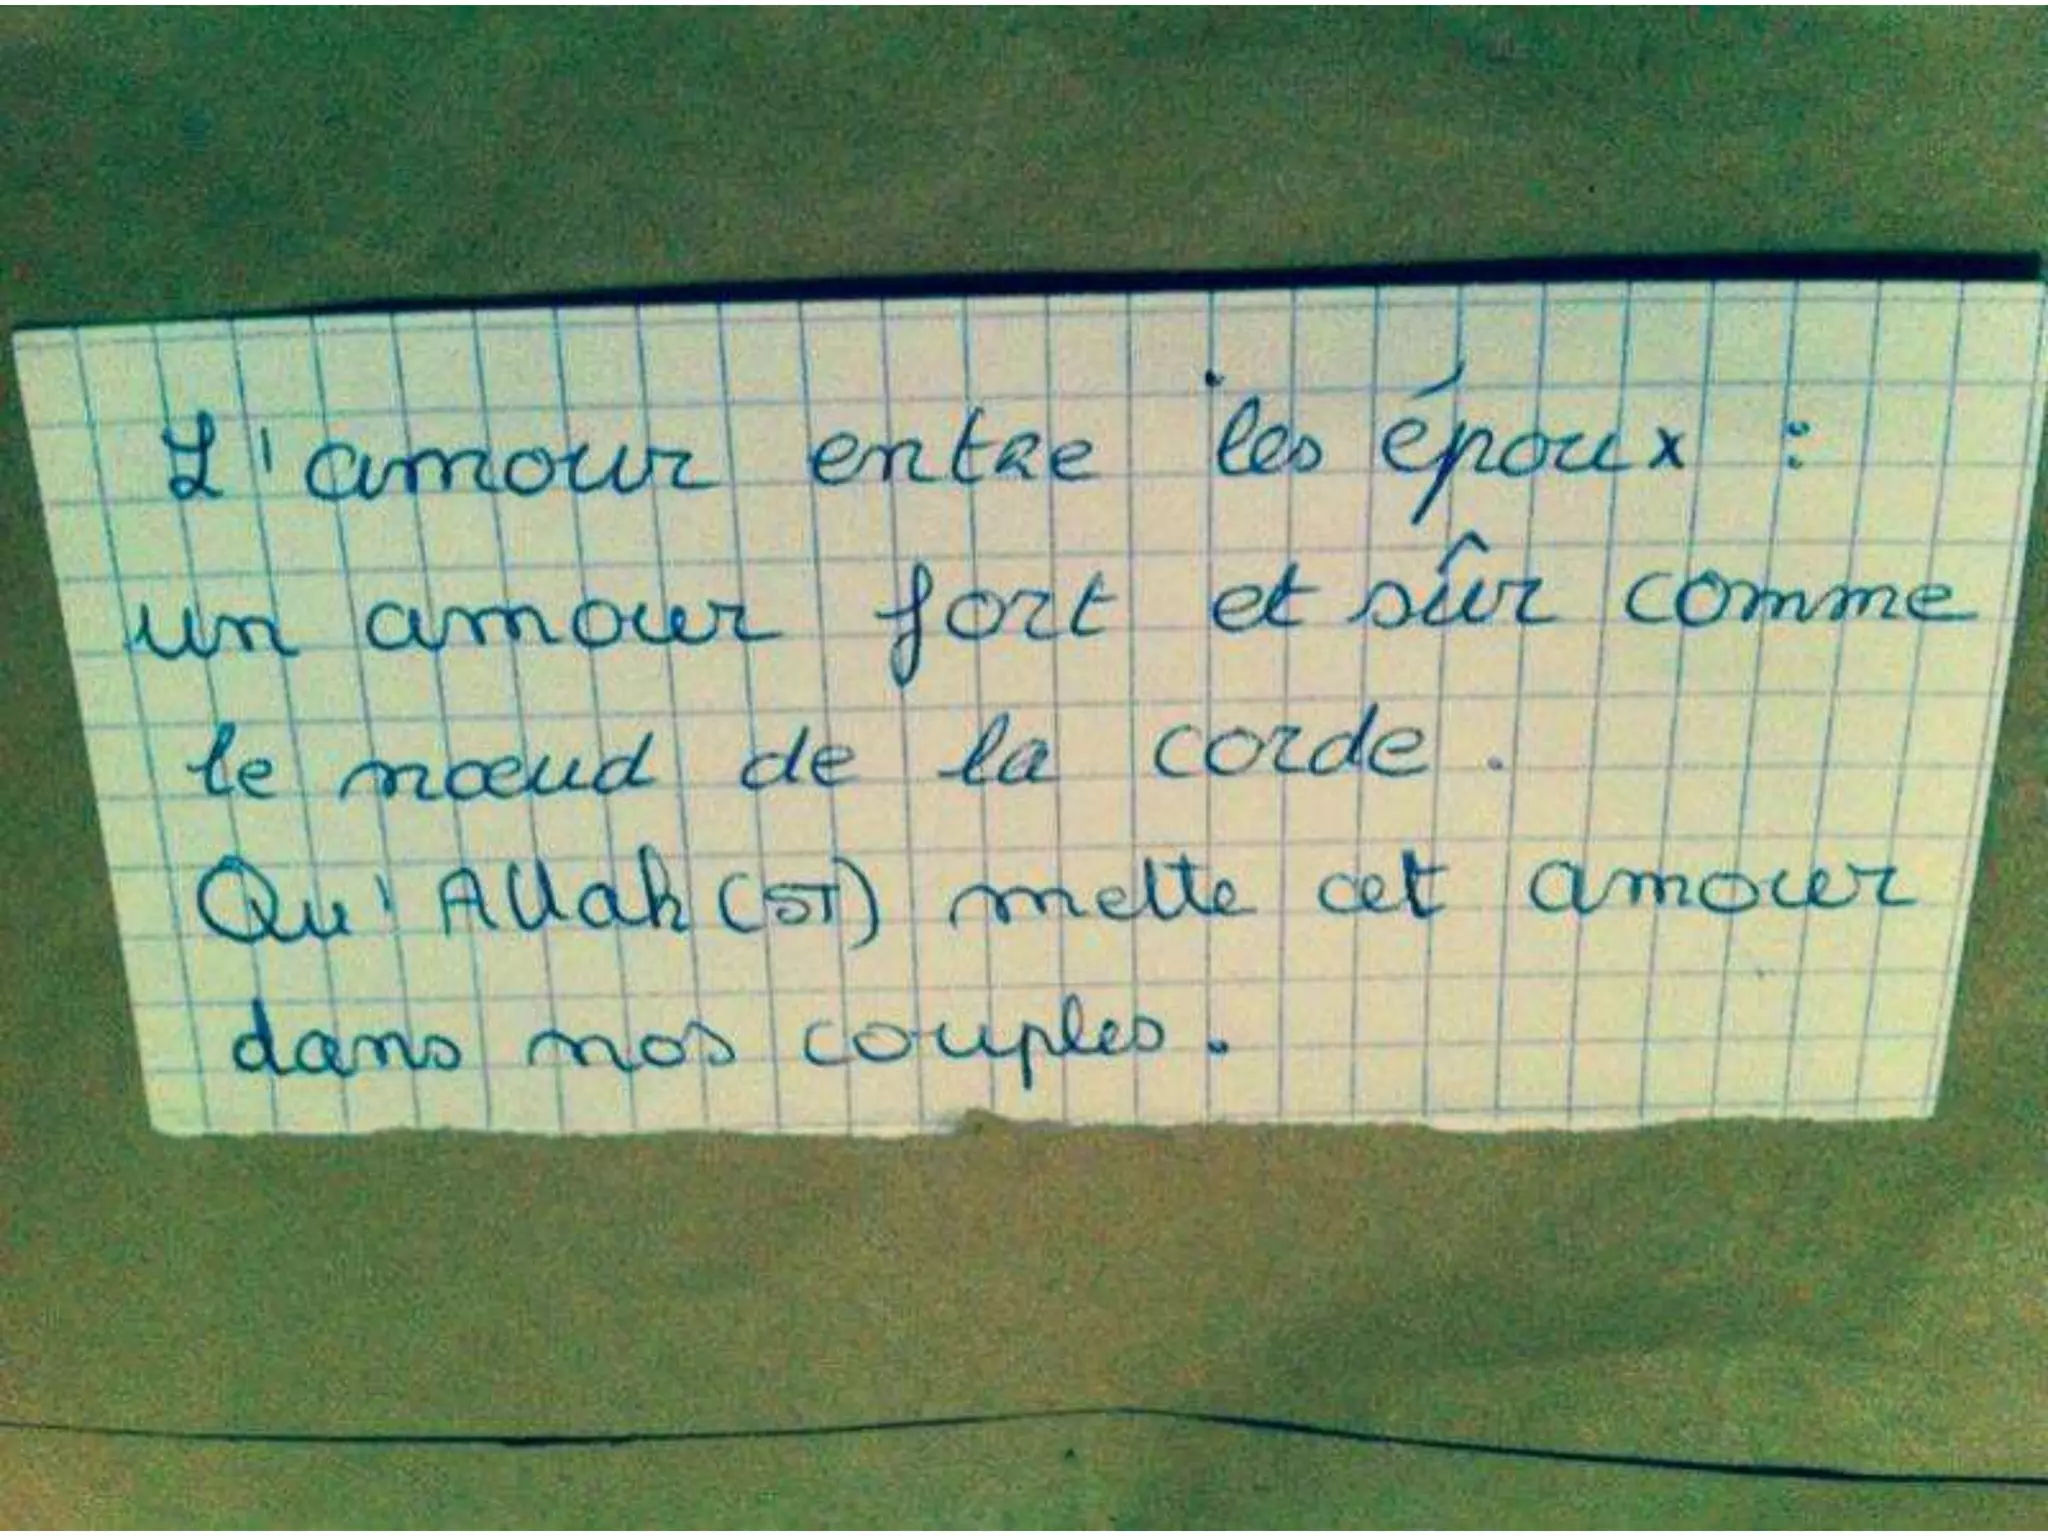 L'amour entre les époux :
un amour fort et sûr comme
le nœud de la corde.
Qu'Allah (ST) mette cet amour
dans nos couples.